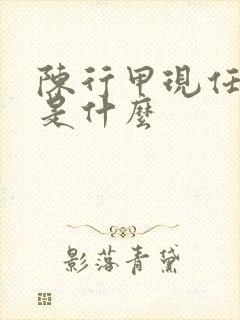 陳行甲現任
是什麼
影落青黛